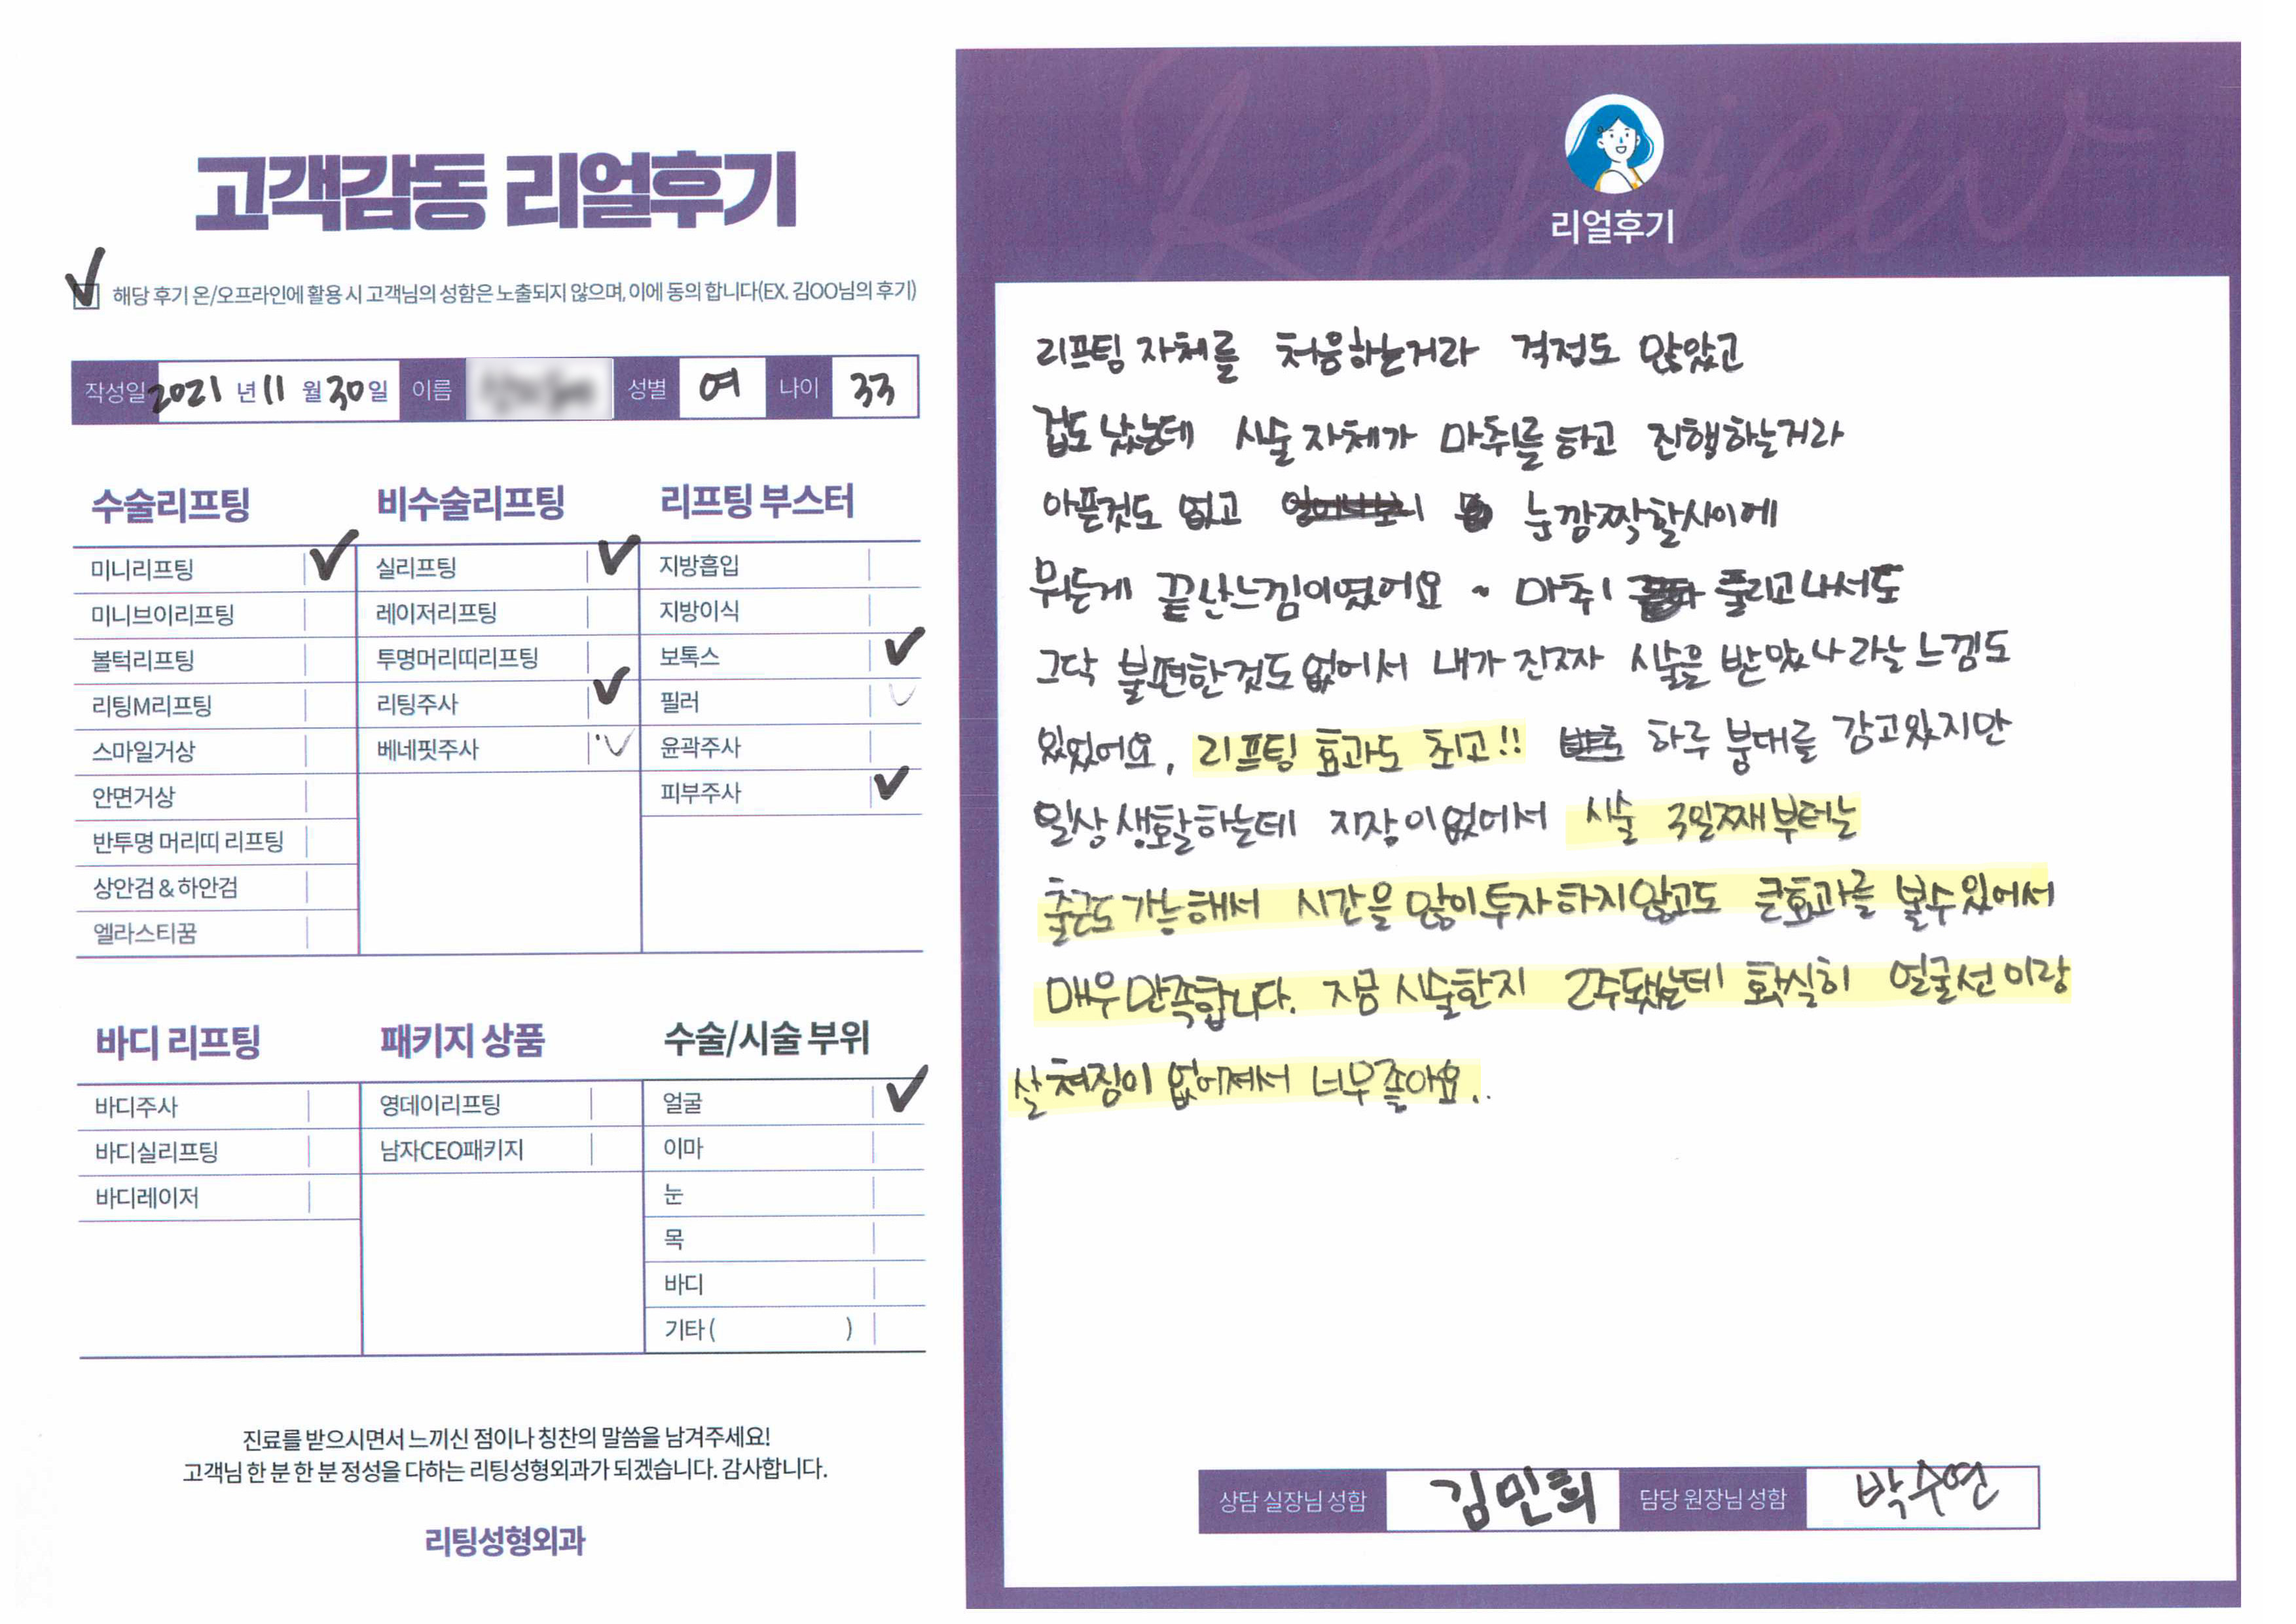 고객감동 리얼후기
해당 후기 온/오프라인에 활용 시 고객님의 성함은 노출되지 않으며, 이에 동의 합니다(EX. 김OO님의 후기)
작성일 2021 년 11 월 30 일 이름 성별 여 나이 33
수술리프팅
미니리프팅
미니브이리프팅
볼턱리프팅
리팅M리프팅
스마일거상
안면거상
반투명 머리띠 리프팅
상안검 & 하안검
엘라스티꿈
비수술리프팅
실리프팅
레이저리프팅
투명머리띠리프팅
리팅주사
베네핏주사
리프팅 부스터
지방흡입
지방이식
보톡스
필러
윤곽주사
피부주사
바디 리프팅
바디주사
바디실리프팅
바디레이저
패키지 상품
영데이리프팅
남자CEO패키지
수술/시술 부위
얼굴
이마
눈
목
바디
기타 ( )
진료를 받으시면서 느끼신 점이나 칭찬의 말씀을 남겨주세요!
고객님 한 분 한 분 정성을 다하는 리팅성형외과가 되겠습니다. 감사합니다.
리팅성형외과
Review
리얼후기
리프팅 자체를 처음하는거라 걱정도 많았고
겁도 났는데 시술 자체가 마취를 하고 진행하는거라
아픈것도 없고 눈 깜짝할사이에
뭐든게 끝난느낌이였어요 ~ 마취 풀리고 나서도
그닥 불편한것도 없어서 내가 진짜 시술을 받았나 라는 느낌도
있었어요, 리프팅 효과도 최고!! 하루 붕대를 감고있지만
일상생활하는데 지장이없어서 시술 3일째부터는
출근도 가능해서 시간을 많이 투자하지않고도 큰효과를 볼수 있어서
매우 만족합니다. 지금 시술한지 2주됐는데 확실히 얼굴선 이랑
살 쳐짐이 없어져서 너무 좋아요..
상담 실장님 성함 김민희 담당 원장님 성함 박수연